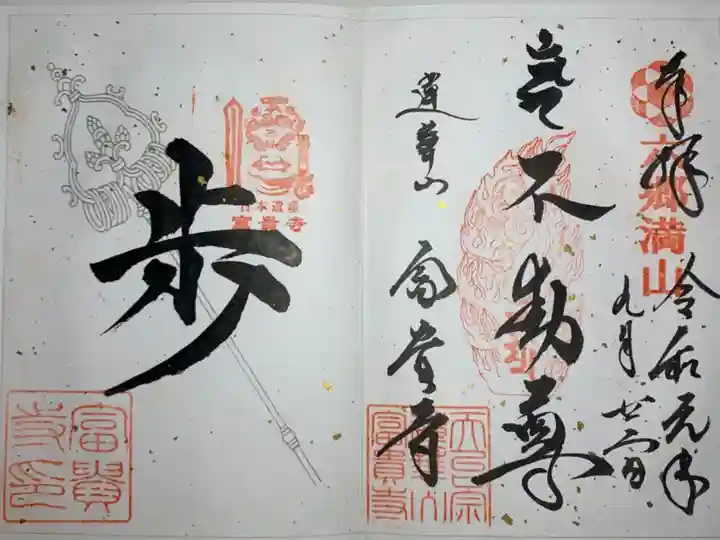 奉拝
六郷満山
令和元年
九月廿二日
岩不動尊
蓮華山
富貴寺
天台宗
蓮華山
富貴寺
日本遺産
富貴寺
歩
富貴
寺印